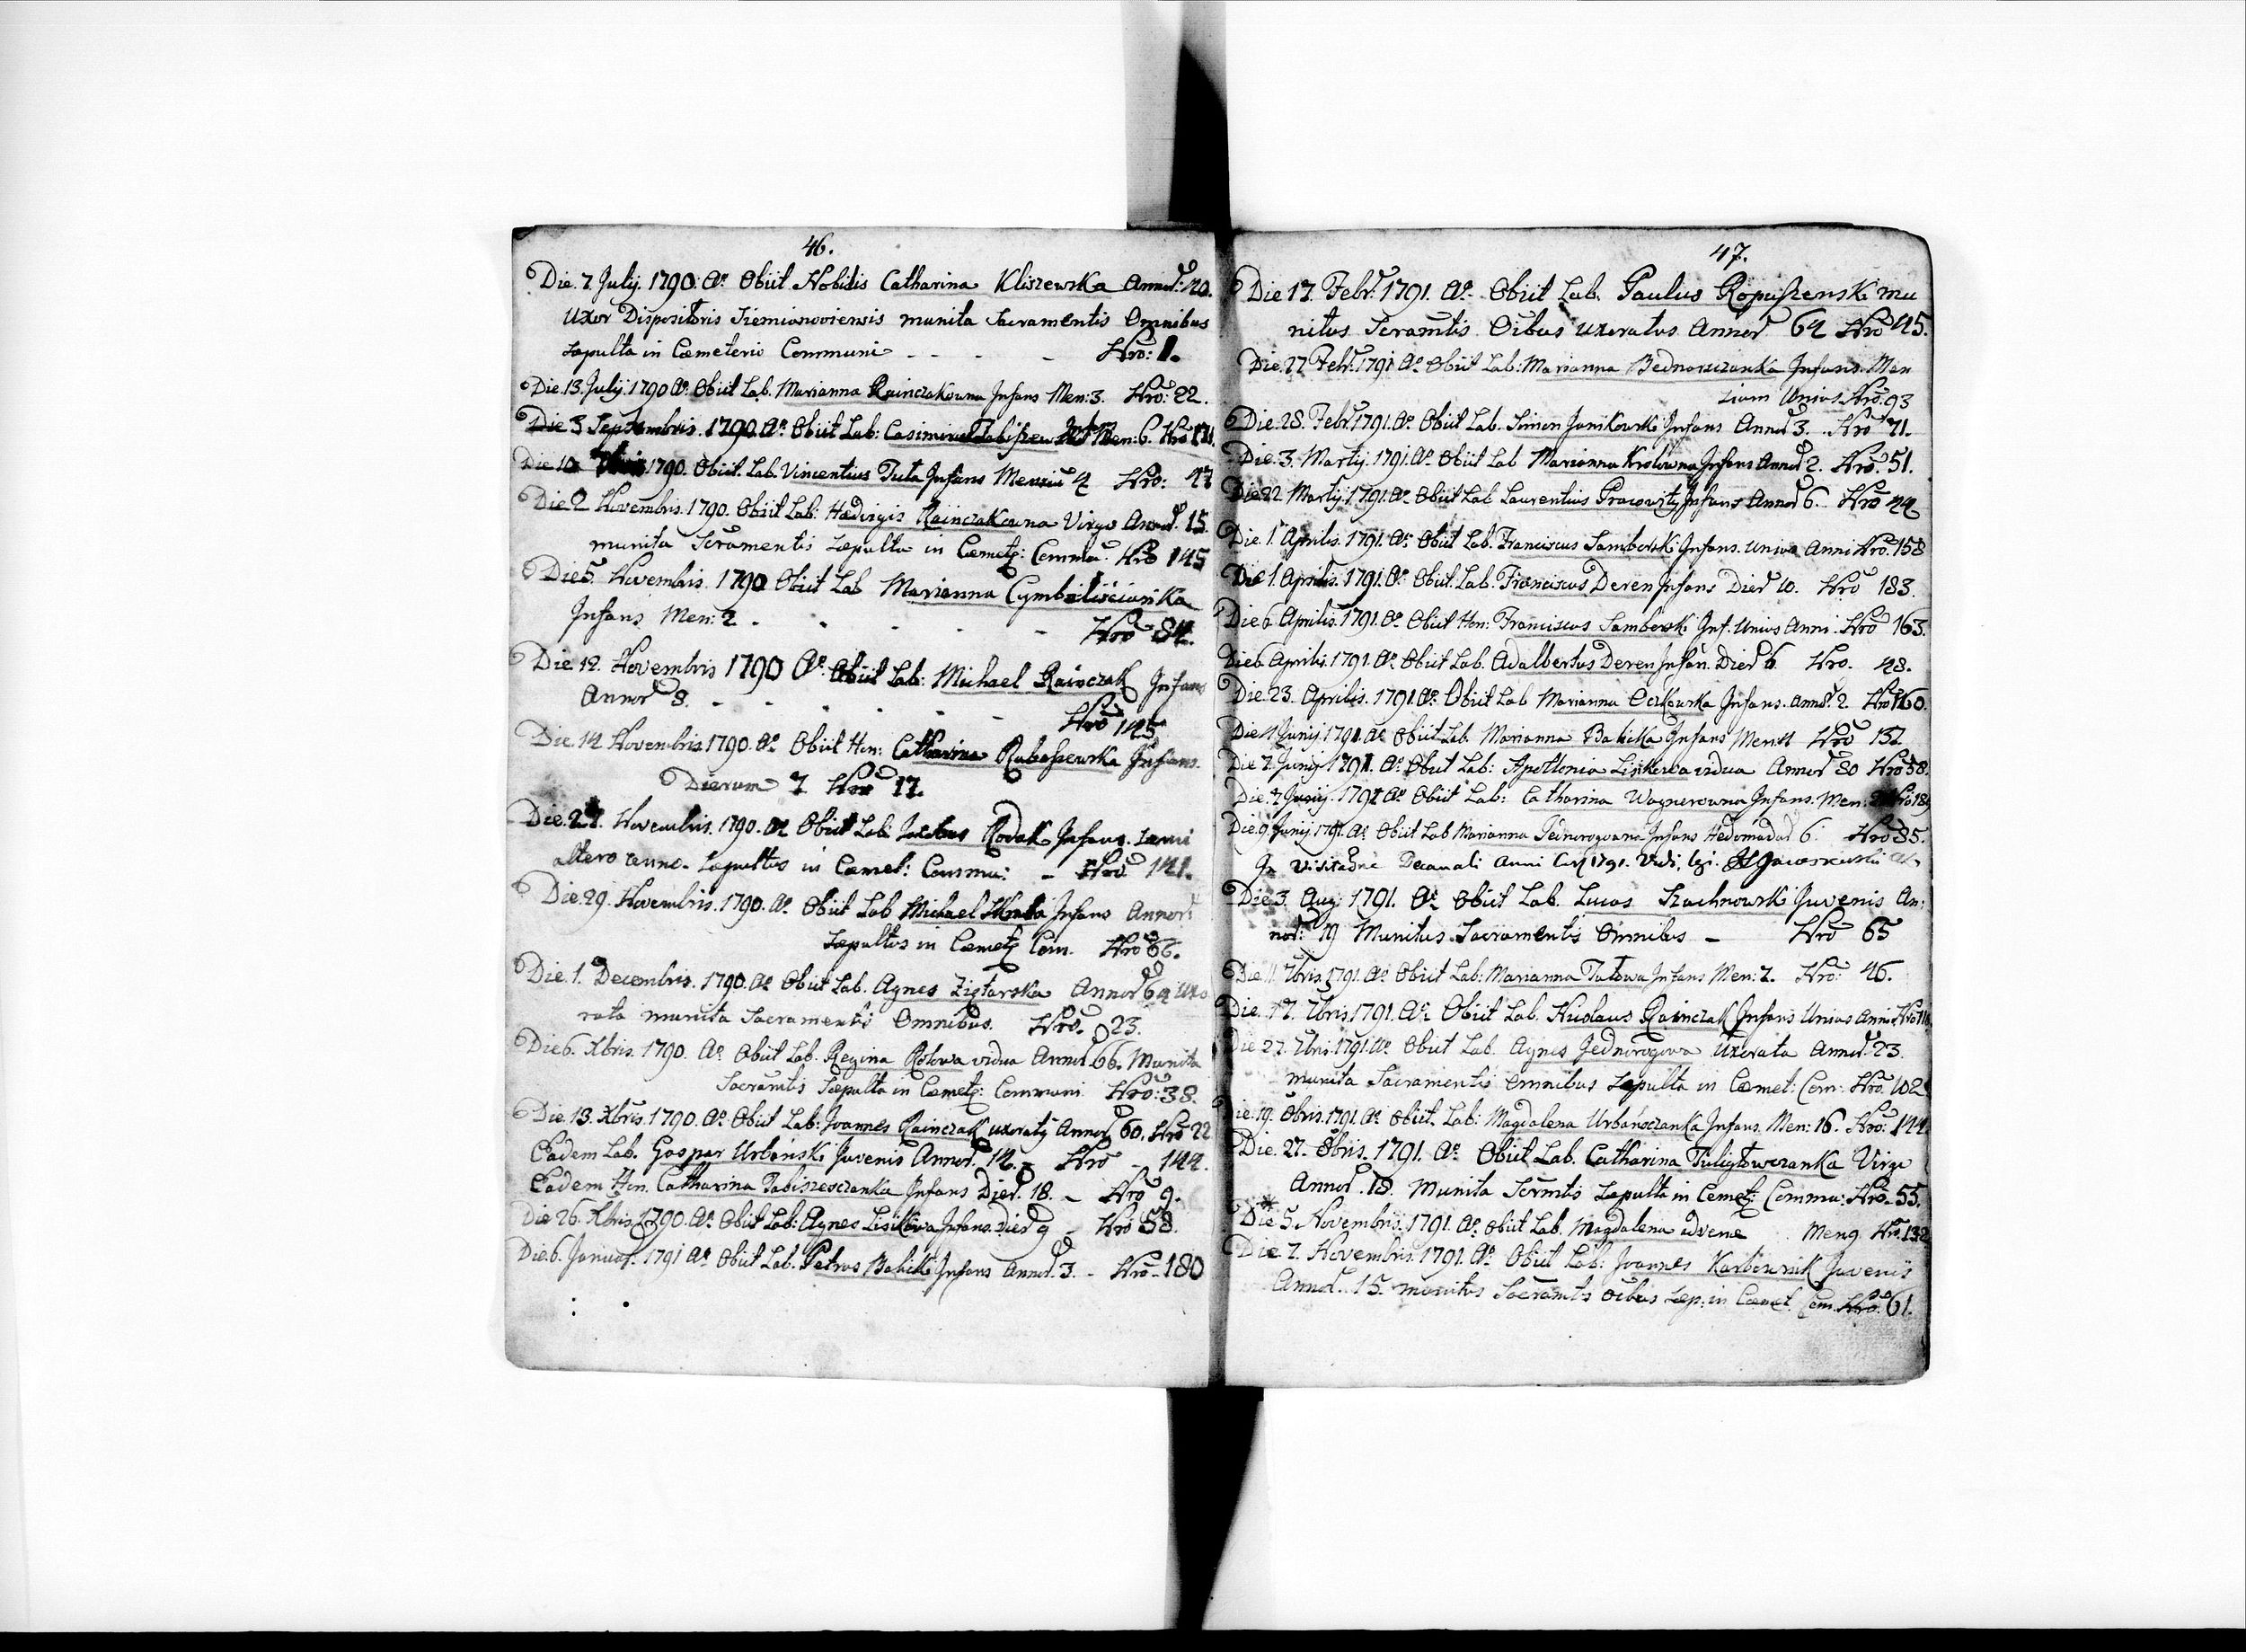 46.
Die. 7. July. 1790. Ao. Obiit Nobilis Catharina Kliszewska Annor: 20.
Uxor Dispositoris Siemianoviensis munita Sacramentis Omnibus
Sepulta in Cæmeterio Communi - - - - Nro: 1.
Die. 13. July. 1790 Ao. Obiit Lab. Marianna Rainczakowna Infans Men: 3. Nro: 22.
Die 3 Septembris. 1790. Ao. Obiit Lab: Casimirus Men: 6. Nro
Die 10 1790. Obiit. Lab. Vincentius Tuta Infans Mensiu 4 Nro: 47
Die 2 Novembris. 1790. Obiit Lab: Hedvigis Rainczakowna Virgo Annor. 15.
munita Scramentis Sepulta in Cæmet: Commu: Nro 145
Die 5. Novembris. 1790 Obiit Lab Marianna Cymbaliścianka
Infans Men: 2. - - - - Nro 84.
Die 12. Novembris 1790 Ao. Obiit Lab: Michael Rainczak Infans
Annor 8. - - - - - Nro 145
Die. 14 Novembris 1790. Ao. Obiit Hon: Catharina Rubaszewska Infans.
Dierum 7. Nro 17.
Die. 27. Novembris. 1790. Ao. Obiit Lab: Jacobus Rodak Infans. Semi
altero anno. Sepultus in Cæmet: Commu: - Nro 141.
Die. 29. Novembris. 1790. Ao. Obiit Lab Michael Infans Annor:
Sepultus in Cæmet: Com. Nro 66.
Die. 1. Decembris. 1790. Ao. Obiit Lab. Agnes Ziętarska Annor 64 Uxo
rata munita Sacramentis Omnibus. Nro. 23.
Die 6. Xbris. 1790. Ao. Obiit Lab. Regina Rolowa vidua Annor. 66. Munita
Sacramtis Sepulta in Cæmet: Communi Nro: 38.
Die. 13. Xbris. 1790. Ao. Obiit Lab: Joannes Rainczak uxoratq Annor 60. Nro 22
Eadem Lab. Gaspar Urbański Juvenis Annor. 14. - Nro - 144.
Eadem Hon. Catharina Tabiszeoczanka Infans Dier. 18. - Nro 9.
Die 26. Xbris 1790. Ao. Obiit Lab: Agnes Lisikowa Infans. Dier 9 - Nro 58.
Die. 6. Januar. 1791 Ao. Obiit Lab. Petrus Babicki Infans Annor. 3. - Nro - 180
47.
Die 17. Febr. 1791. Ao. Obiit Lab. Paulus Ropuszenski mu
nitus Scramtis Oibus uxoratus Annor 64 Nro 45.
Die. 27 Febr. 1791. Ao. Obiit Lab: Marianna Bednarczanka Infans. Men
sium Unius Nro. 93
Die. 28. Febr. 1791. Ao. Obiit Lab. Simon Janikowski Infans Annor 3. Nro 71.
Die. 3. Martij. 1791. Ao. Obiit Lab Marianna Krolowna Infans Annor 2. Nro. 51.
Die 22. Martij. 1791. Ao. Obiit Lab Laurentius Infans Annor 6. Nro 44
Die. 1. Aprilis. 1791. Ao. Obiit Lab. Franciscus Samborski Infans. Unius Anni Nro. 158
Die 1. Aprilis. 1791. Ao. Obiit. Lab. Franciscus Deren Infans Dier 10. Nro 183.
Die 6 Aprilis. 1791. Ao. Obiit Hon: Franciscus Samborski Inf. Unius Anni. Nro 163.
Die 6 Aprilis. 1791. Ao. Obiit Lab. Adalbertus Deren Infan. Dier 6 Nro. 48.
Die. 23. Aprilis. 1791. Ao. Obiit Lab Marianna Oczkowska Infans. Annor. 2. Nro 160.
Die 4 Junij. 1791. Ao. Obiit Lab. Marianna Babicka Infans Men: 11 Nro 137
Die 7. Junij 1791. Ao. Obiit Lab: Apollonia Lisikowa vidua Annor 80 Nro 58.
Die. 7 Junij. 1791 Ao. Obiit Lab: Catharina Wagnerowna Infans. Men:
Die 9 Junij 1791. Ao. Obiit Lab Marianna Infans Hedomadar 6. Nro 85.
In Visitatne Decanali Anni Curr 1791. Vidi, legi.
Die 3. Aug. 1791. Ao. Obiit Lab. Lucas Szachnowski Juvenis An:
nor: 19 Munitus Sacramentis Omnibus - Nro 65
Die. 11. 7bris. 1791. Ao. Obiit Lab: Marianna Tutowa Infans Men: 7. Nro: 46.
Die. 17. 7bris. 1791. Ao. Obiit Lab. Nicolaus Rainczak Infans Unius Anni
Die 27. 7bris 1791. Ao. Obiit Lab. Agnes Jednorogowa Uxorata Annor. 23.
munita Sacramentis omnibus Sepulta in Cæmet: Com: Nro. 102
Die. 19. 8bris. 1791. Ao. Obiit. Lab: Magdalena Urbańsczanka Infans. Men: 16. Nro: 144
Die. 27. 8bris. 1791. Ao. Obiit Lab. Catharina Tuligłowczanka Virgo
Annor. 18. Munita Scrmtis Sepulta in Cemet: Commu: Nro. 55.
* Die 5. Novembris. 1791. Ao. Obiit Lab. Magdalena advene Men 9 Nro. 132
Die 7. Novembris. 1791. Ao. Obiit Lab: Joannes Karbownik Juvenis
Annor. 15. munitus Sacramts oibus Sep: in Cæmet. Com. Nro. 61.